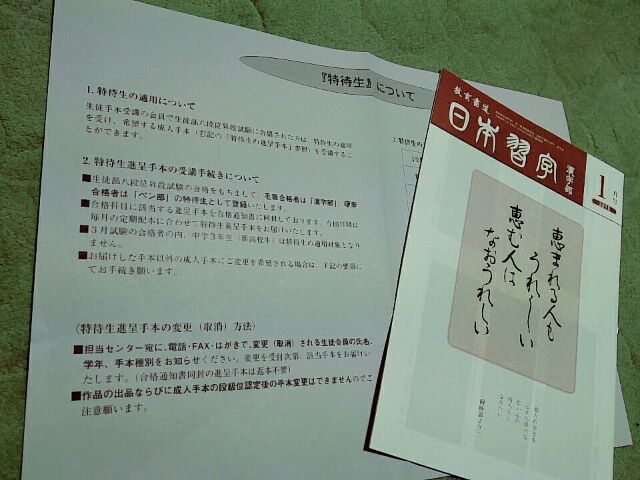 『特待生』について
1. 特待生の適用について
生徒手本受講の会員で生徒部八段位昇段試験に合格された方は、特待生の適用
を受け、希望する成人手本（右記の「特待生の進呈手本」参照）を受講するこ
とができます。
2. 特待生進呈手本の受講手続きについて
■生徒部八段位昇段試験の合格をもちまして、毛筆合格者は「漢字部」、硬筆
合格者は「ペン部」の特待生として登録いたします。
■合格科目に該当する進呈手本を合格通知書に同封しております。今回以降は
毎月の定期配本に合わせて特待生進呈手本をお届けいたします。
■3月試験の合格者の内、中学3年生（新高校生）は特待生の適用対象となり
ません。
■お届けした手本以外の成人手本にご変更を希望される場合は、下記の要領に
てお手続き願います。
〈特待生進呈手本の変更（取消）方法〉
■担当センター宛に、電話・FAX・はがきで、変更（取消）される生徒会員の氏名、
学年、手本種別をお知らせください。変更を受付次第、該当手本をお届けい
たします。（合格通知書同封の進呈手本は返本不要）
■作品の出品ならびに成人手本の段級位認定後の手本変更はできませんのでご
注意願います。
教育書道
日本習字
漢字部
1
月号
恵まれる人も
うれしい
恵む人は
なおうれしい